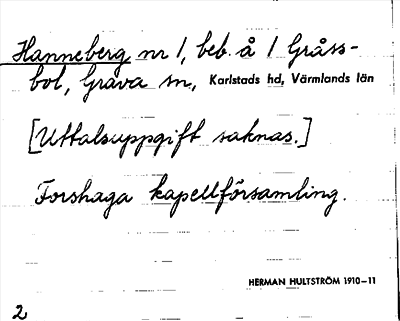 Hanneberg nr 1, beb. å 1 Gråss-
bol, Grava sn, Karlstads hd, Värmlands län
[Uttalsuppgift saknas.]
Forshaga kapellförsamling.
HERMAN HULTSTRÖM 1910–11
2